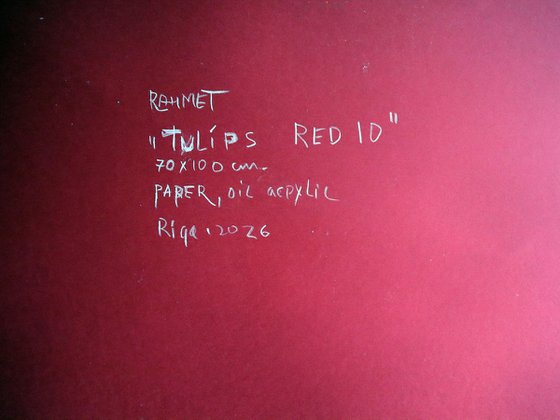 RAHMET
"TULIPS RED 10"
70x100 cm.
PAPER, oil acrylic
Riga. 2026